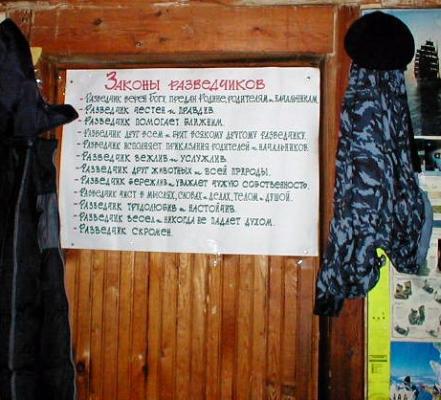 Законы разведчиков
- Разведчик верен Богу, предан Родине, родителям и начальникам.
- Разведчик честен и правдив.
- Разведчик помогает ближним.
- Разведчик друг всем и брат всякому другому разведчику.
- Разведчик исполняет приказания родителей и начальников.
- Разведчик вежлив и услужлив.
- Разведчик друг животных и всей природы.
- Разведчик бережлив и уважает чужую собственность.
- Разведчик чист в мыслях, словах и делах, телом и душой.
- Разведчик трудолюбив и настойчив.
- Разведчик весел и никогда не падает духом.
- Разведчик скромен.